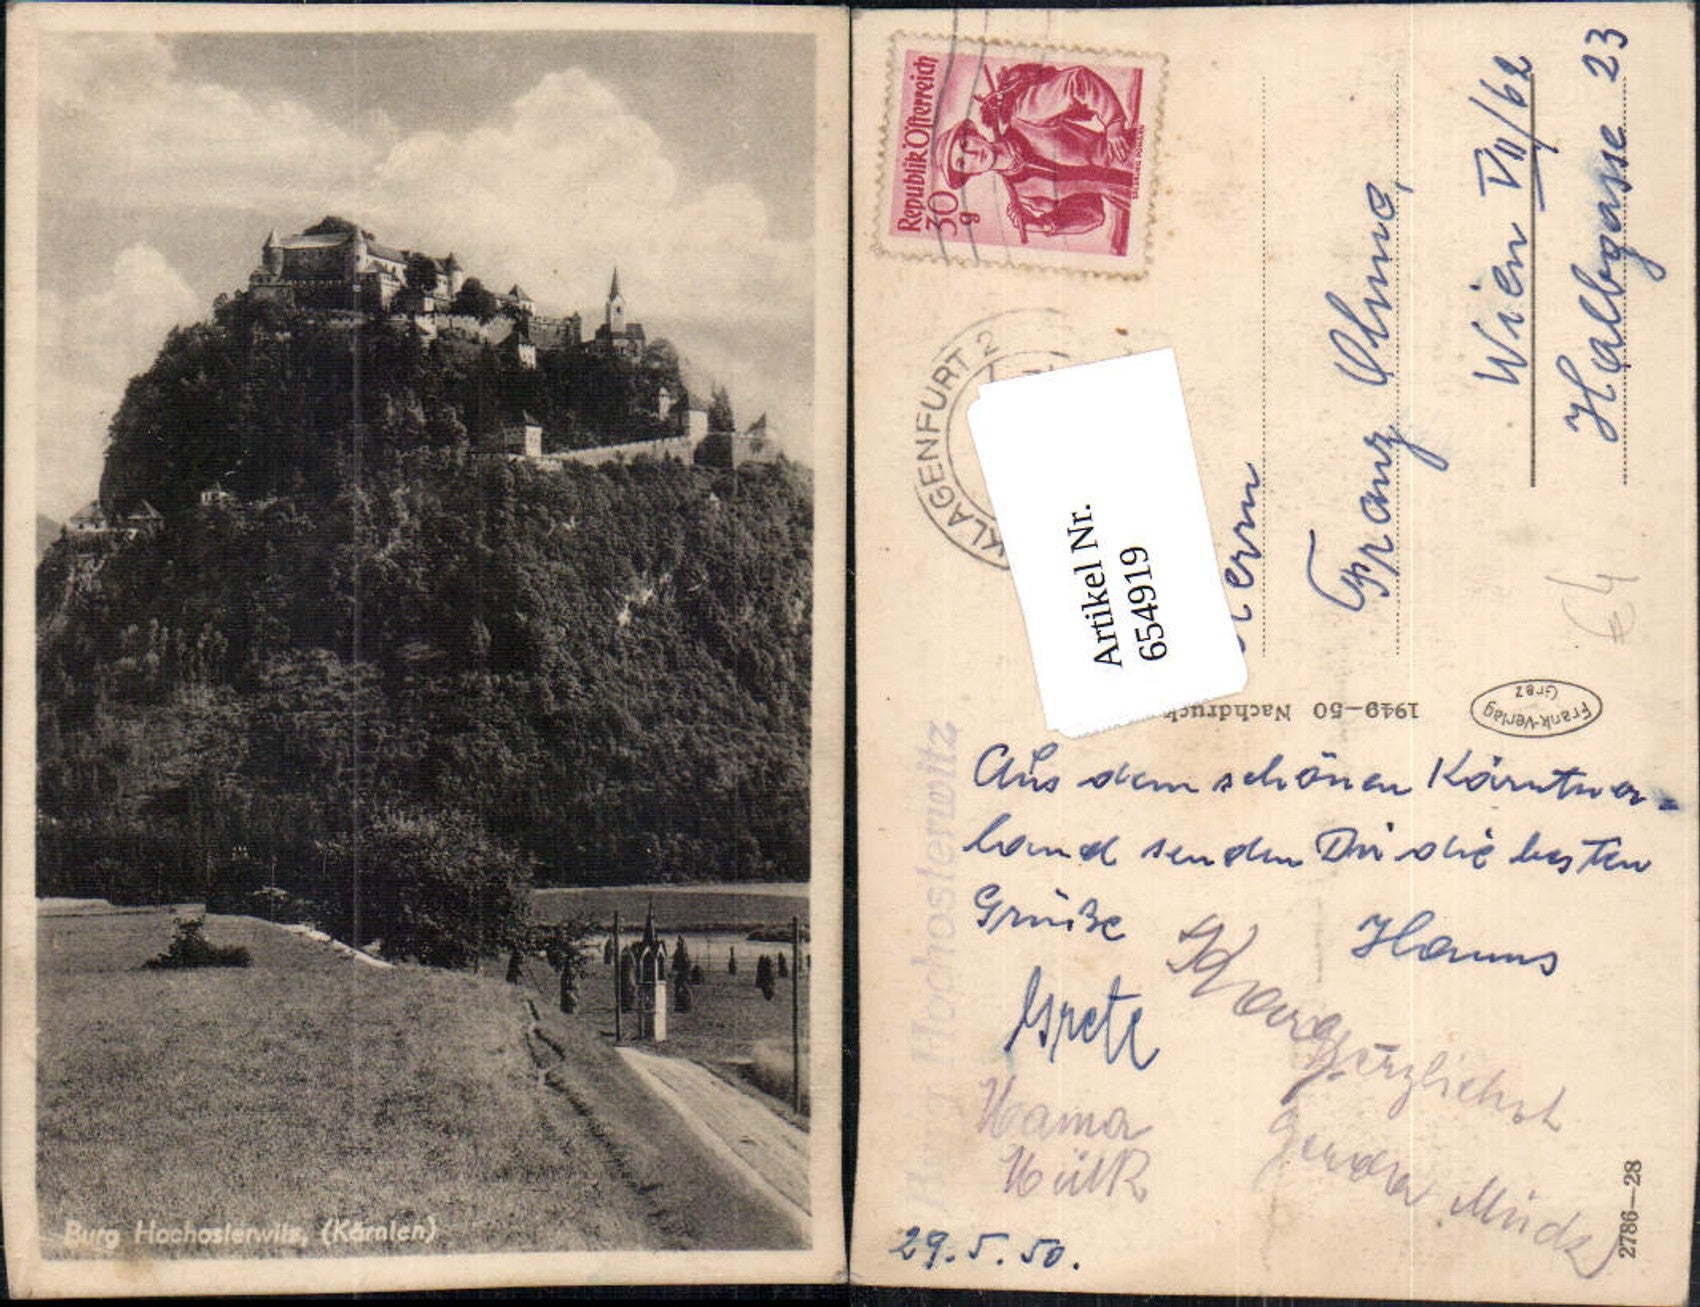 Burg Hochosterwitz, (Kärnten)
Republik Österreich
30 g
KLAGENFURT 2
Artikel Nr.
654919
Franz
Wien VII/62
Halbgasse 23
€4
1949–50 Nachdruck
Frank-Verlag
Graz
Burg Hochosterwitz
Aus dem schönen Kärntner-
land senden Dir die besten
Grüße Hanns
Grete
Herzlichst
Mama
29.5.50.
2786–28